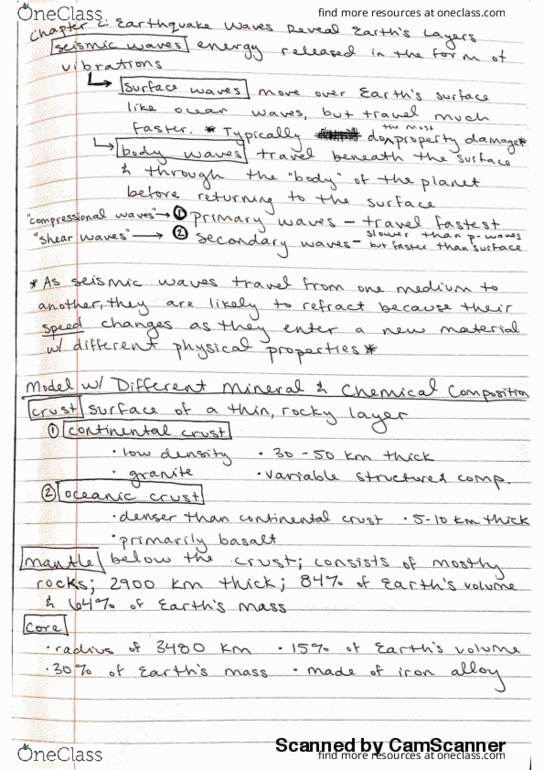 OneClass
find more resources at oneclass.com
Chapter 2: Earthquake Waves Reveal Earth's Layers
seismic waves energy released in the form of
vibrations
surface waves move over Earth's surface
like ocean waves, but travel much
faster. * Typically do the most property damage*
body waves travel beneath the surface
& through the "body" of the planet
before returning to the surface
"compressional waves" → ① primary waves - travel fastest
"shear waves" → ② secondary waves - slower than p-waves but faster than surface
* As seismic waves travel from one medium to
another, they are likely to refract because their
speed changes as they enter a new material
w/ different physical properties *
Model w/ Different Mineral & Chemical Composition
crust surface of a thin, rocky layer
① continental crust
· low density · 30-50 km thick
· granite · variable structure & comp.
② oceanic crust
· denser than continental crust · 5-10 km thick
· primarily basalt
mantle below the crust; consists of mostly
rocks; 2900 km thick; 84% of Earth's volume
& 64% of Earth's mass
core
· radius of 3480 km · 15% of Earth's volume
· 30% of Earth's mass · made of iron alloy
Scanned by CamScanner
OneClass
find more resources at oneclass.com